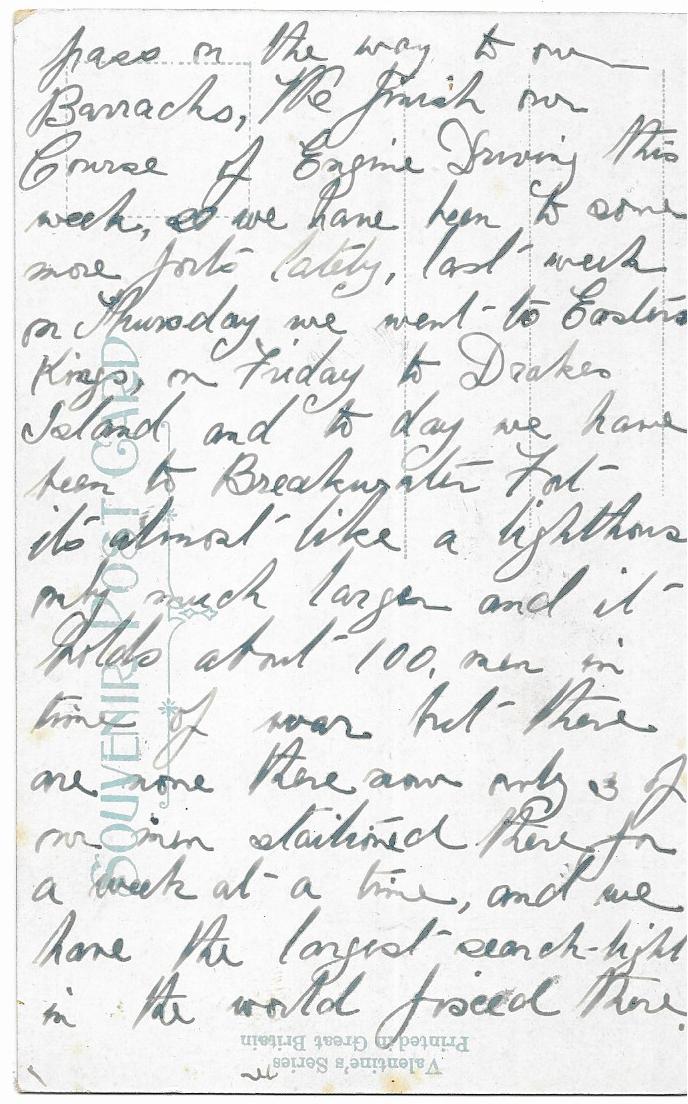 pass on the way to our
Barracks, We finish our
Course of Engine Driving this
week, so we have been to some
more forts lately, last week
on Thursday we went to Eastern
Kings, on Friday to Drakes
Island and to day we have
been to Breakwater Fort
its almost like a lighthous
only much larger and it
holds about 100, men in
time of war but there
are none there now only 3 of
our men stationed there for
a week at a time, and we
have the largest search-light
in the world fixed there.
SOUVENIR POST CARD
Valentine's Series
Printed in Great Britain